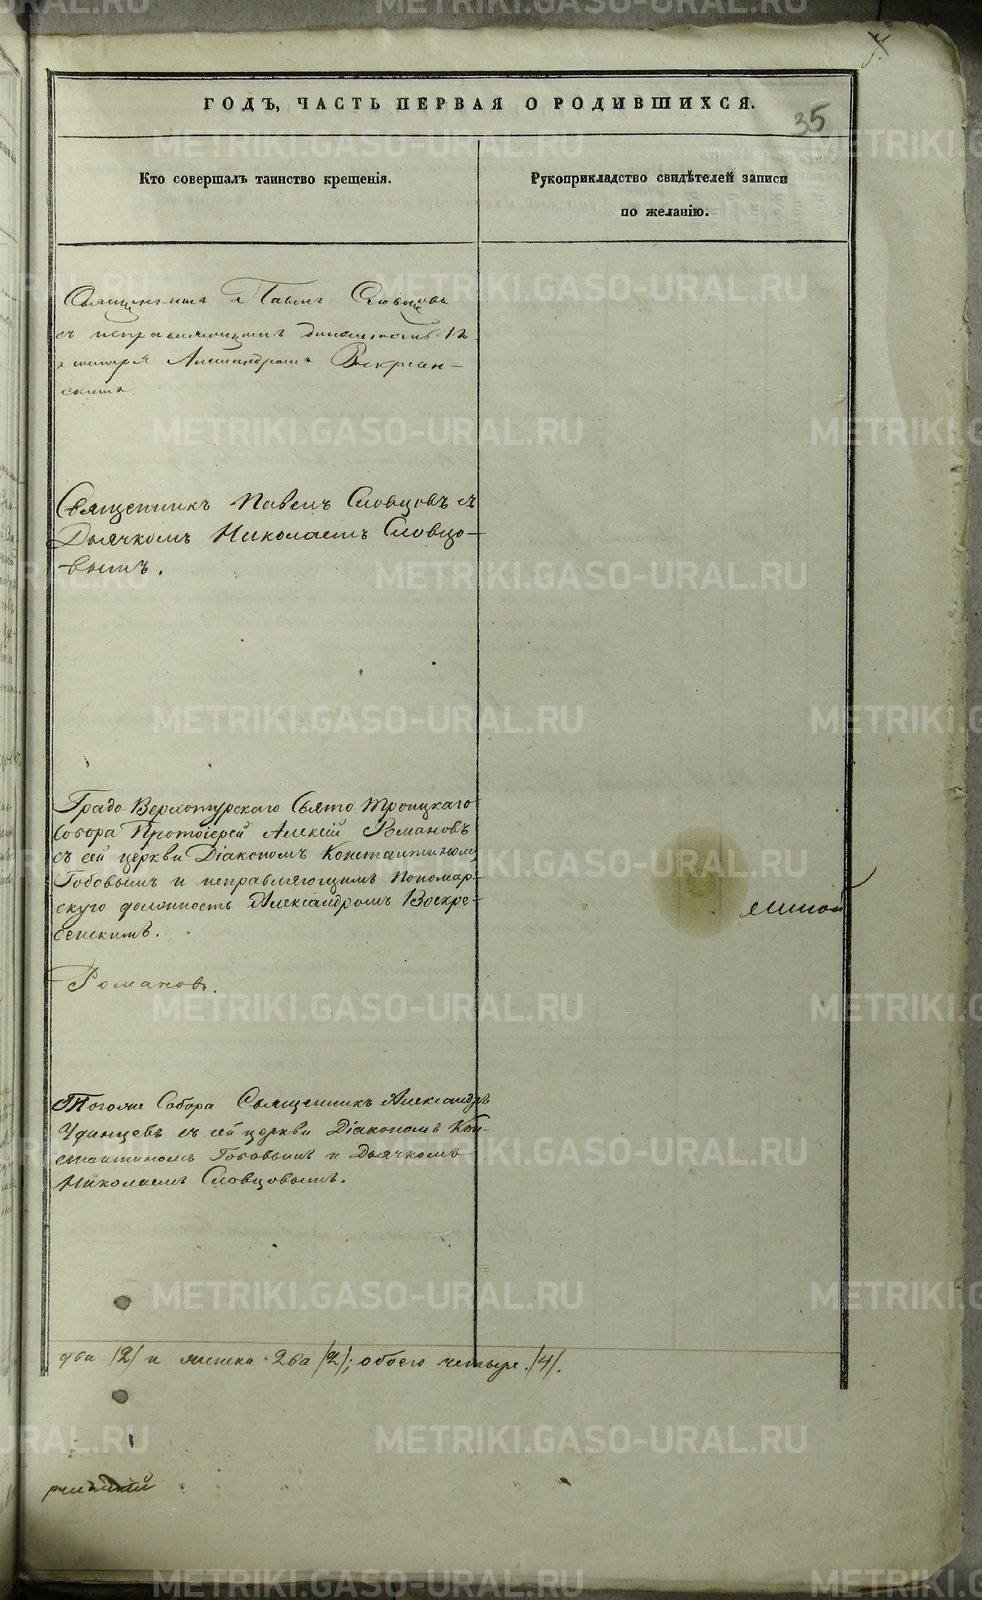 35
ГОДЪ, ЧАСТЬ ПЕРВАЯ О РОДИВШИХСЯ.
Кто совершалъ таинство крещенія.
Рукоприкладство свидѣтелей записи
по желанію.
Священникъ Павелъ Словцовъ
съ исправляющимъ должность По-
номаря Александромъ Воскресен-
скимъ
Священникъ Павелъ Словцовъ съ
Дьячкомъ Николаемъ Словцо-
вымъ.
Градо Верхотурскаго Свято Троицкаго
Собора Протоіерей Алексій Романовъ
съ сей церкви Діакономъ Константиномъ
Гобовымъ и исправляющимъ Пономар-
скую должность Александромъ Воскре-
сенскимъ.
Романовъ.
Тогоже Собора Священникъ Александръ
Удинцевъ съ сей церкви Діакономъ Кон-
стантиномъ Гобовымъ и Дьячкомъ
Николаемъ Словцовымъ.
два /2/ и женска два /2/; обоего четыре /4/.
METRIKI.GASO-URAL.RU